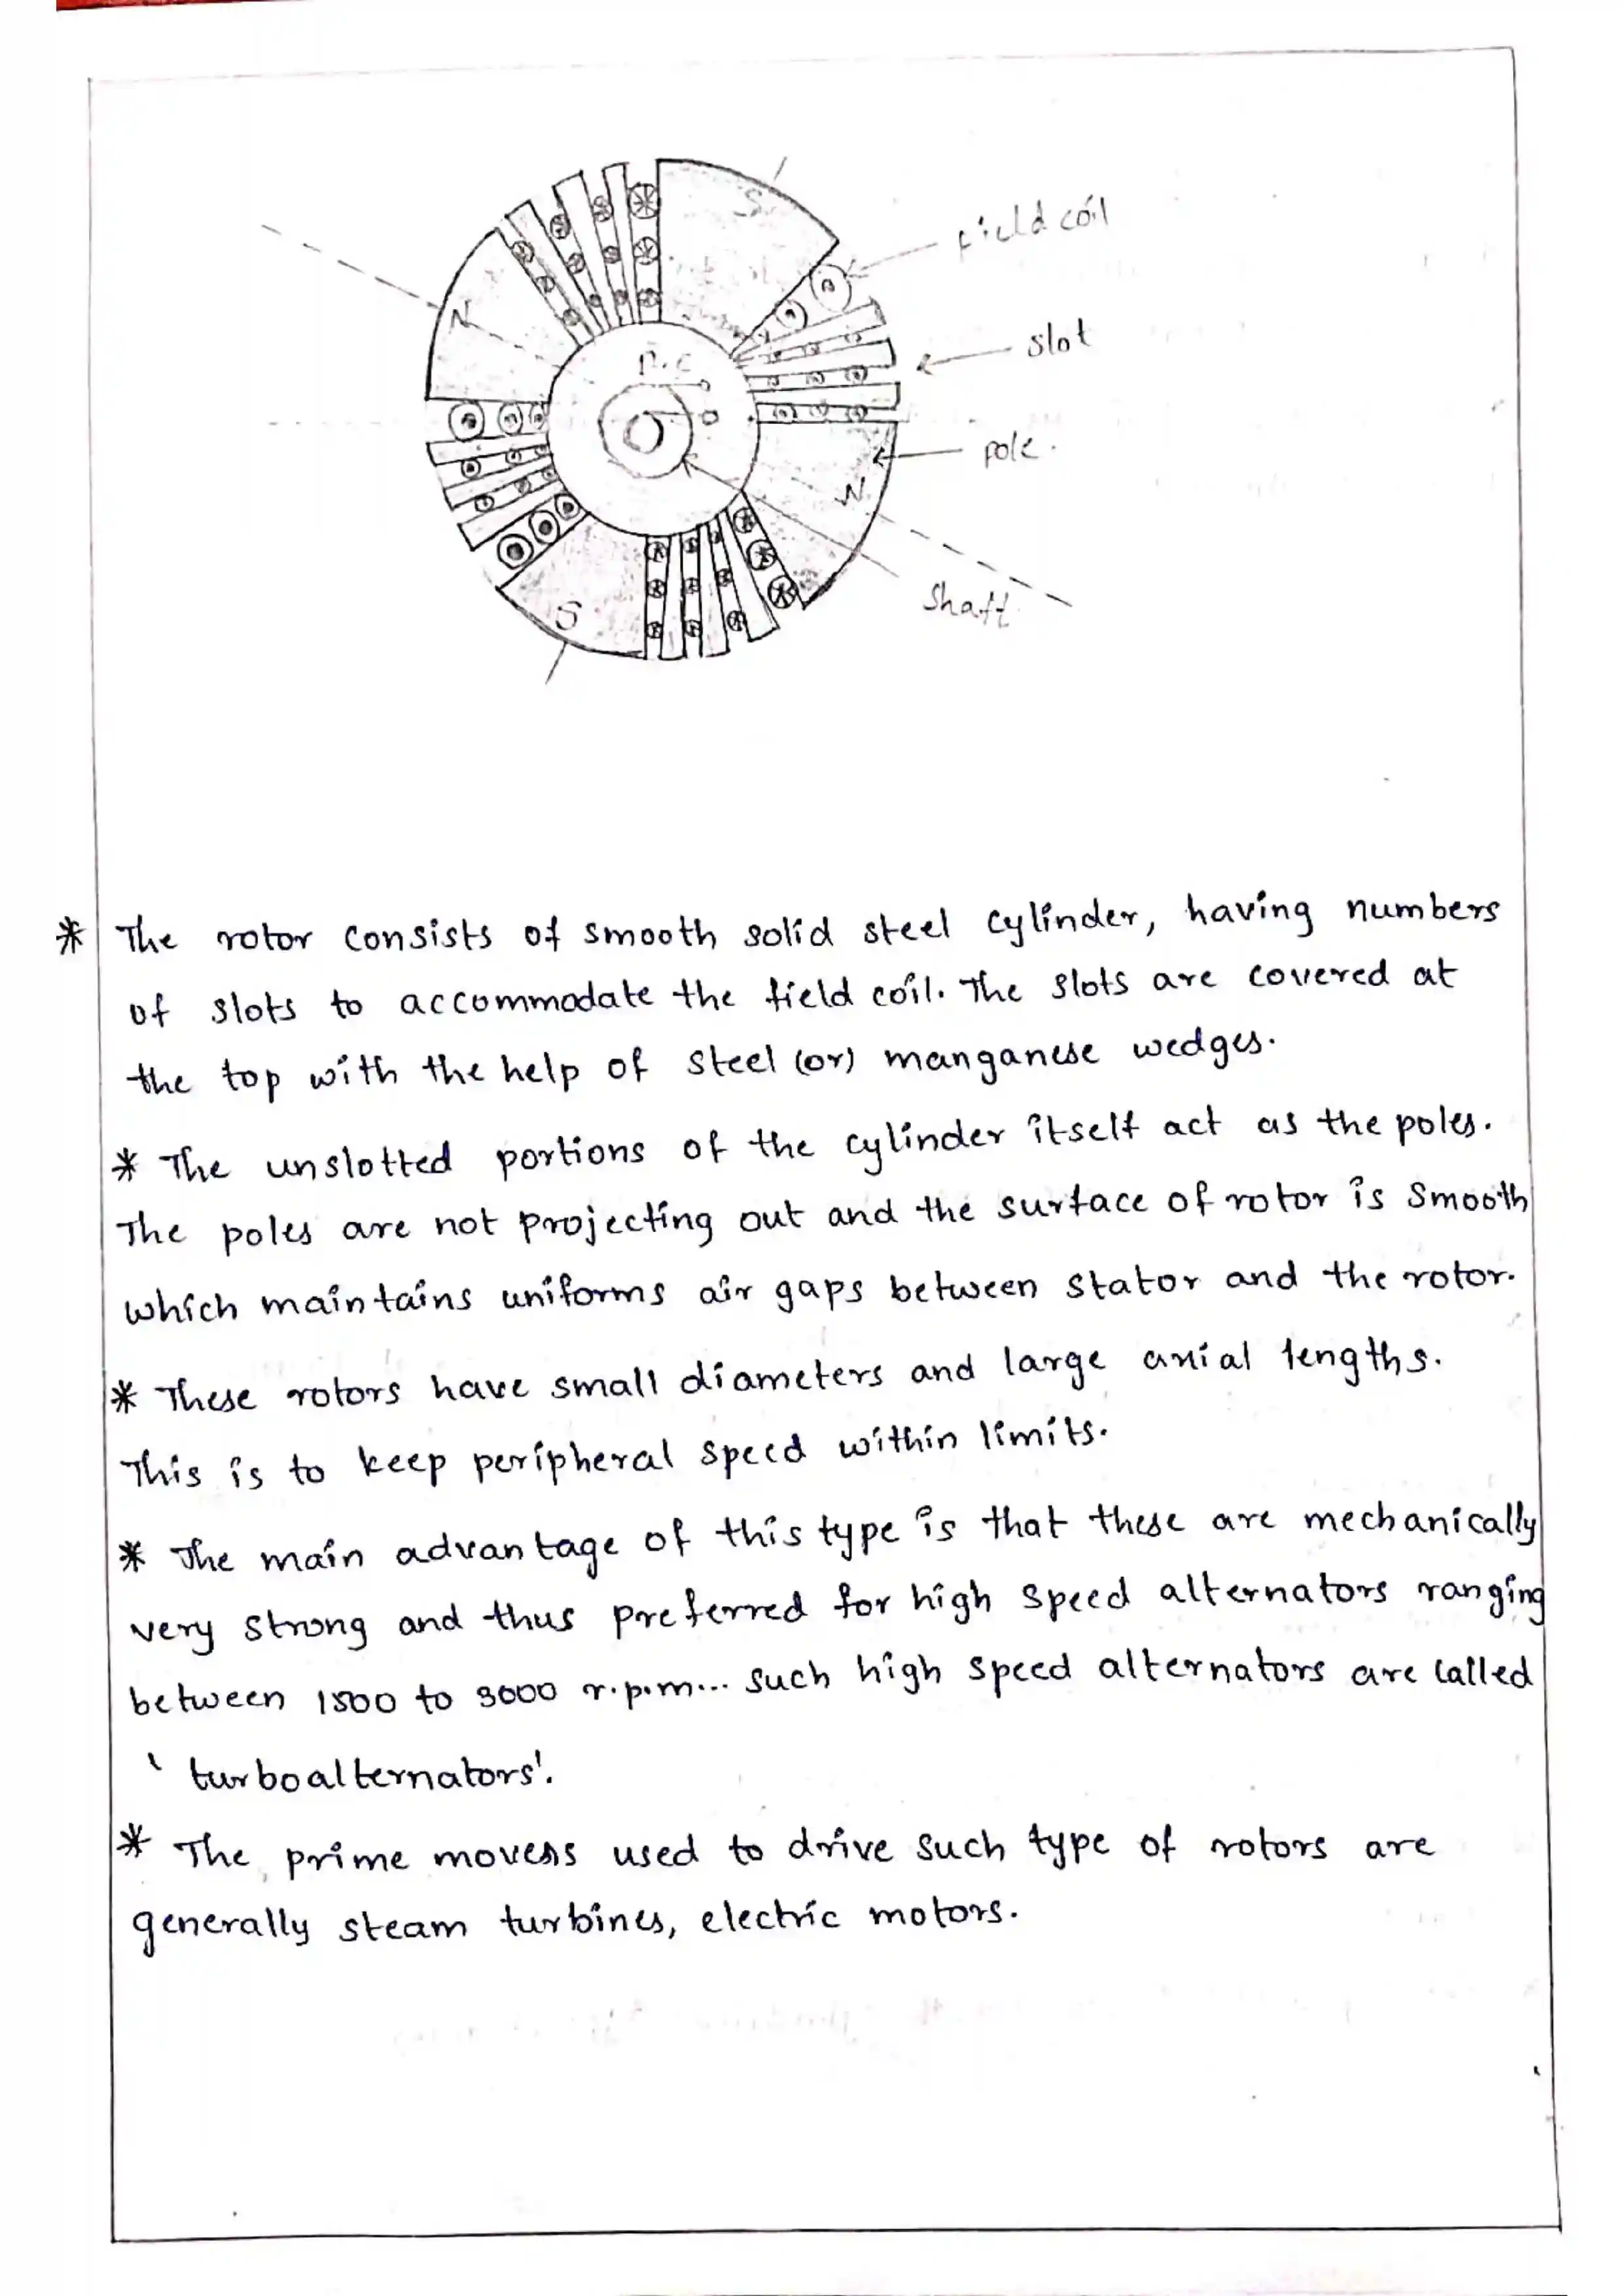 S
field coil
N
D.C
slot
pole.
N
shaft
S
* The rotor consists of smooth solid steel cylinder, having numbers
of slots to accommodate the field coil. The slots are covered at
the top with the help of steel (or) manganese wedges.
* The unslotted portions of the cylinder itself act as the poles.
The poles are not projecting out and the surface of rotor is smooth
which maintains uniforms air gaps between stator and the rotor.
* These rotors have small diameters and large axial lengths.
This is to keep peripheral speed within limits.
* The main advantage of this type is that these are mechanically
very strong and thus preferred for high speed alternators ranging
between 1500 to 3000 r.p.m... such high speed alternators are called
' turboalternators'.
* The prime movers used to drive such type of rotors are
generally steam turbines, electric motors.